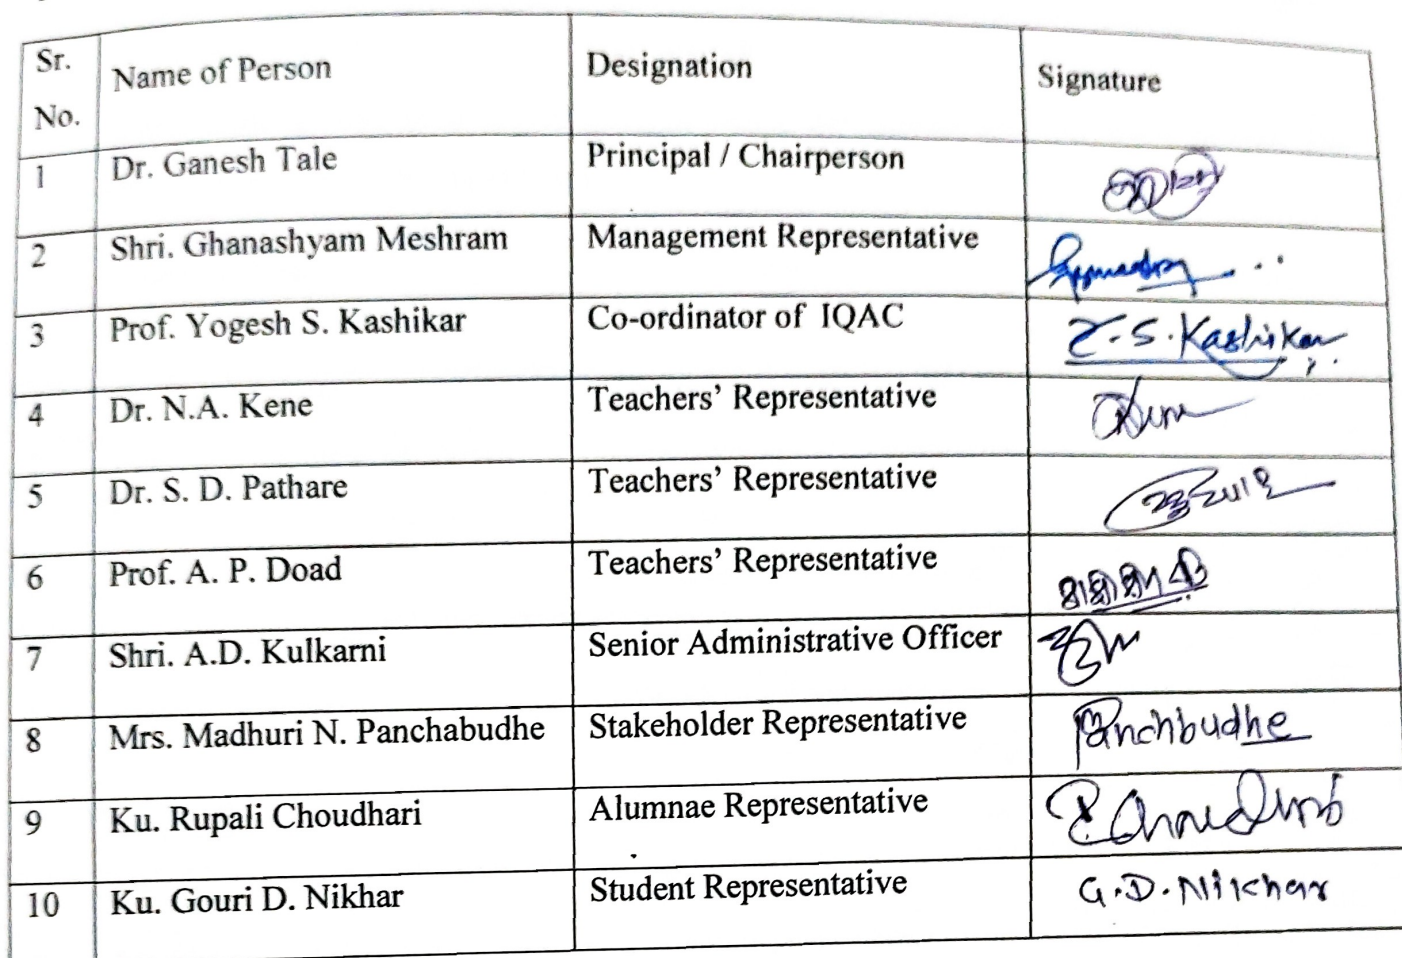 Sr. No. Name of Person Designation Signature
1 Dr. Ganesh Tale Principal / Chairperson
2 Shri. Ghanashyam Meshram Management Representative
3 Prof. Yogesh S. Kashikar Co-ordinator of IQAC Y.S.Kashikar
4 Dr. N.A. Kene Teachers' Representative
5 Dr. S. D. Pathare Teachers' Representative
6 Prof. A. P. Doad Teachers' Representative
7 Shri. A.D. Kulkarni Senior Administrative Officer
8 Mrs. Madhuri N. Panchabudhe Stakeholder Representative Panchbudhe
9 Ku. Rupali Choudhari Alumnae Representative
10 Ku. Gouri D. Nikhar Student Representative G.D.Nikhar